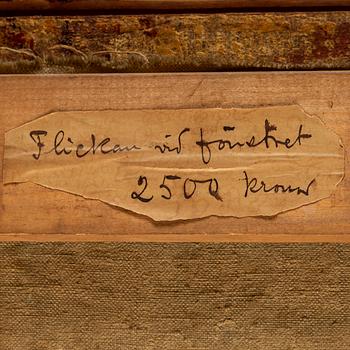 Flickan vid fönstret
2500 kronor